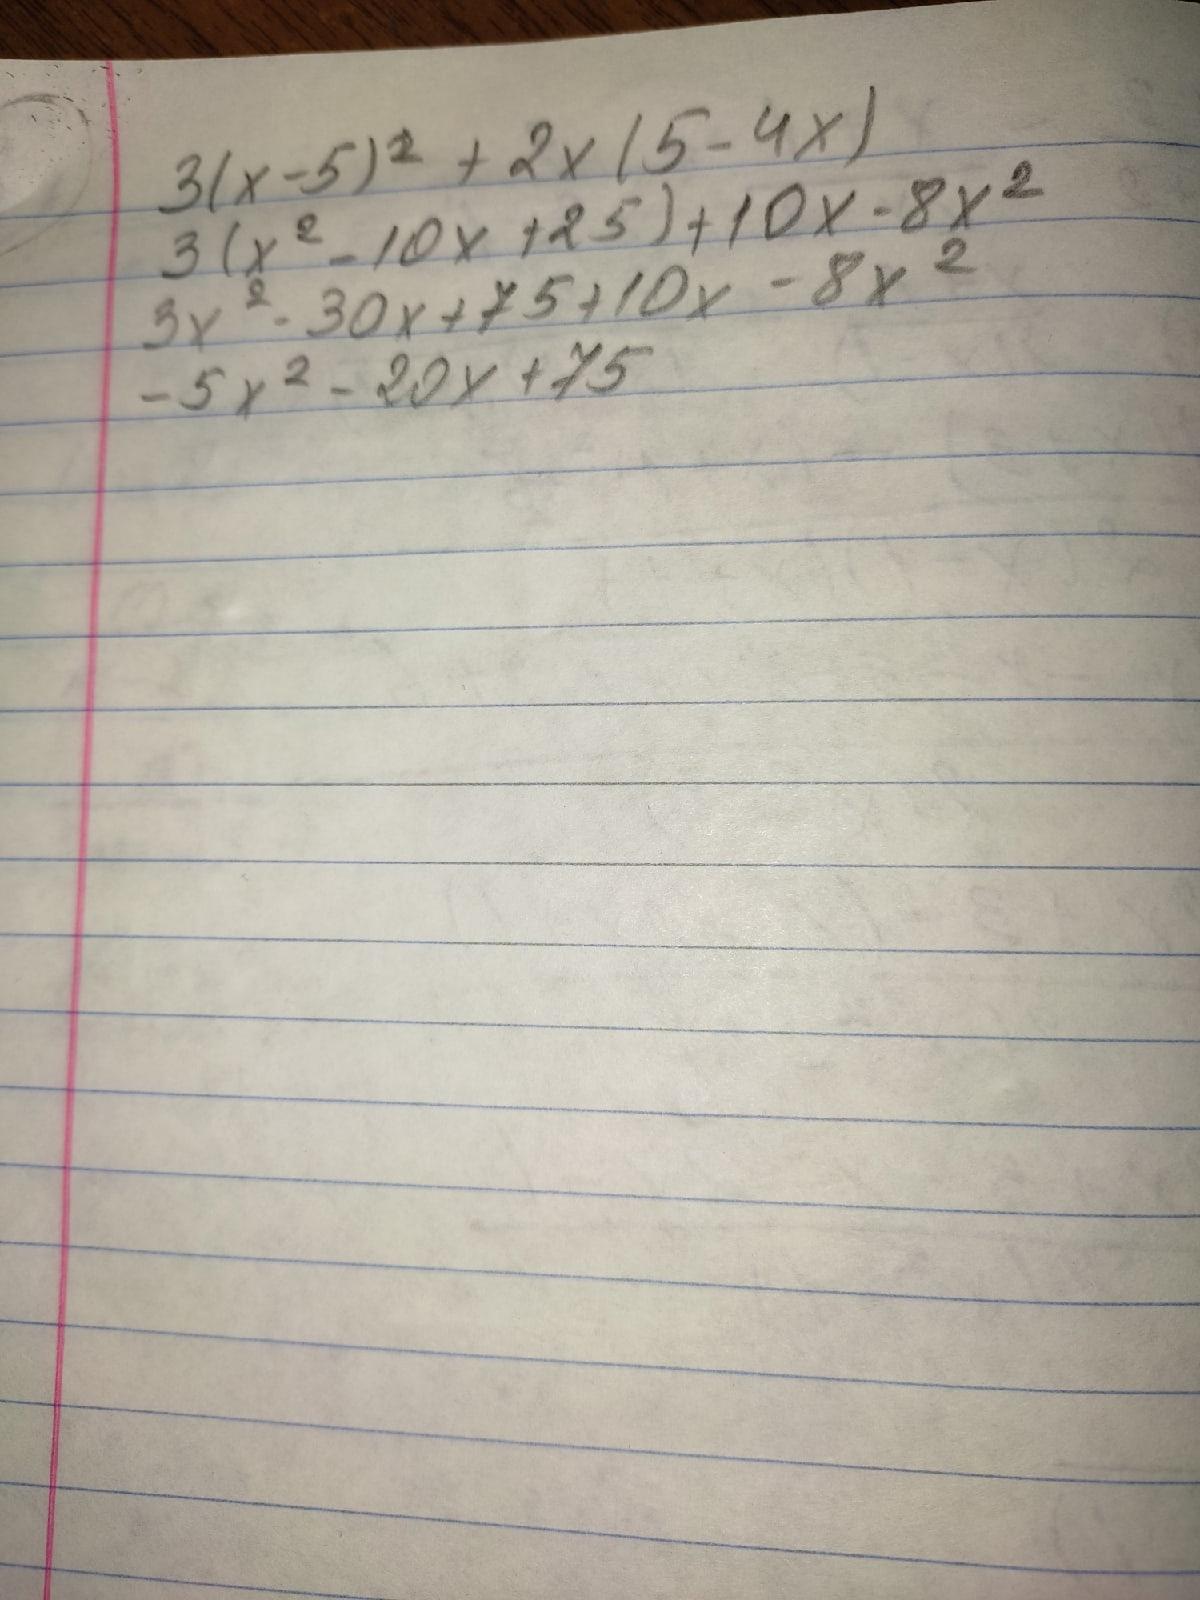 3(x-5)² + 2x(5-4x)
3(x²-10x+25)+10x-8x²
3x²-30x+75+10x-8x²
-5x²-20x+75